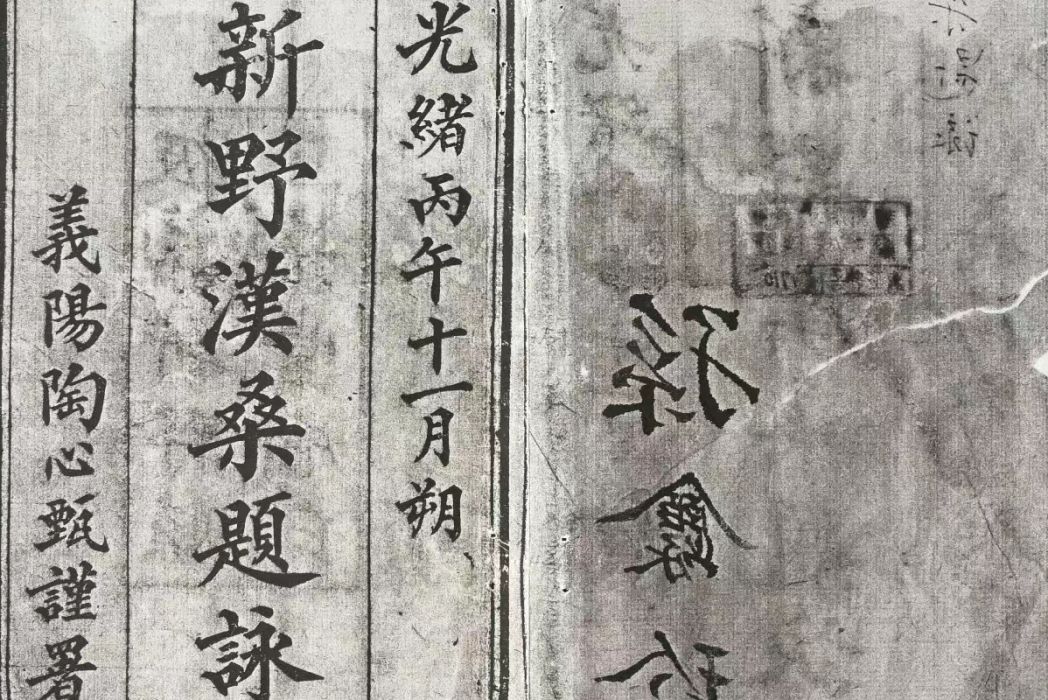 孫珍
光緒丙午十一月朔
新野漢桑題詠
義陽陶心甄謹署